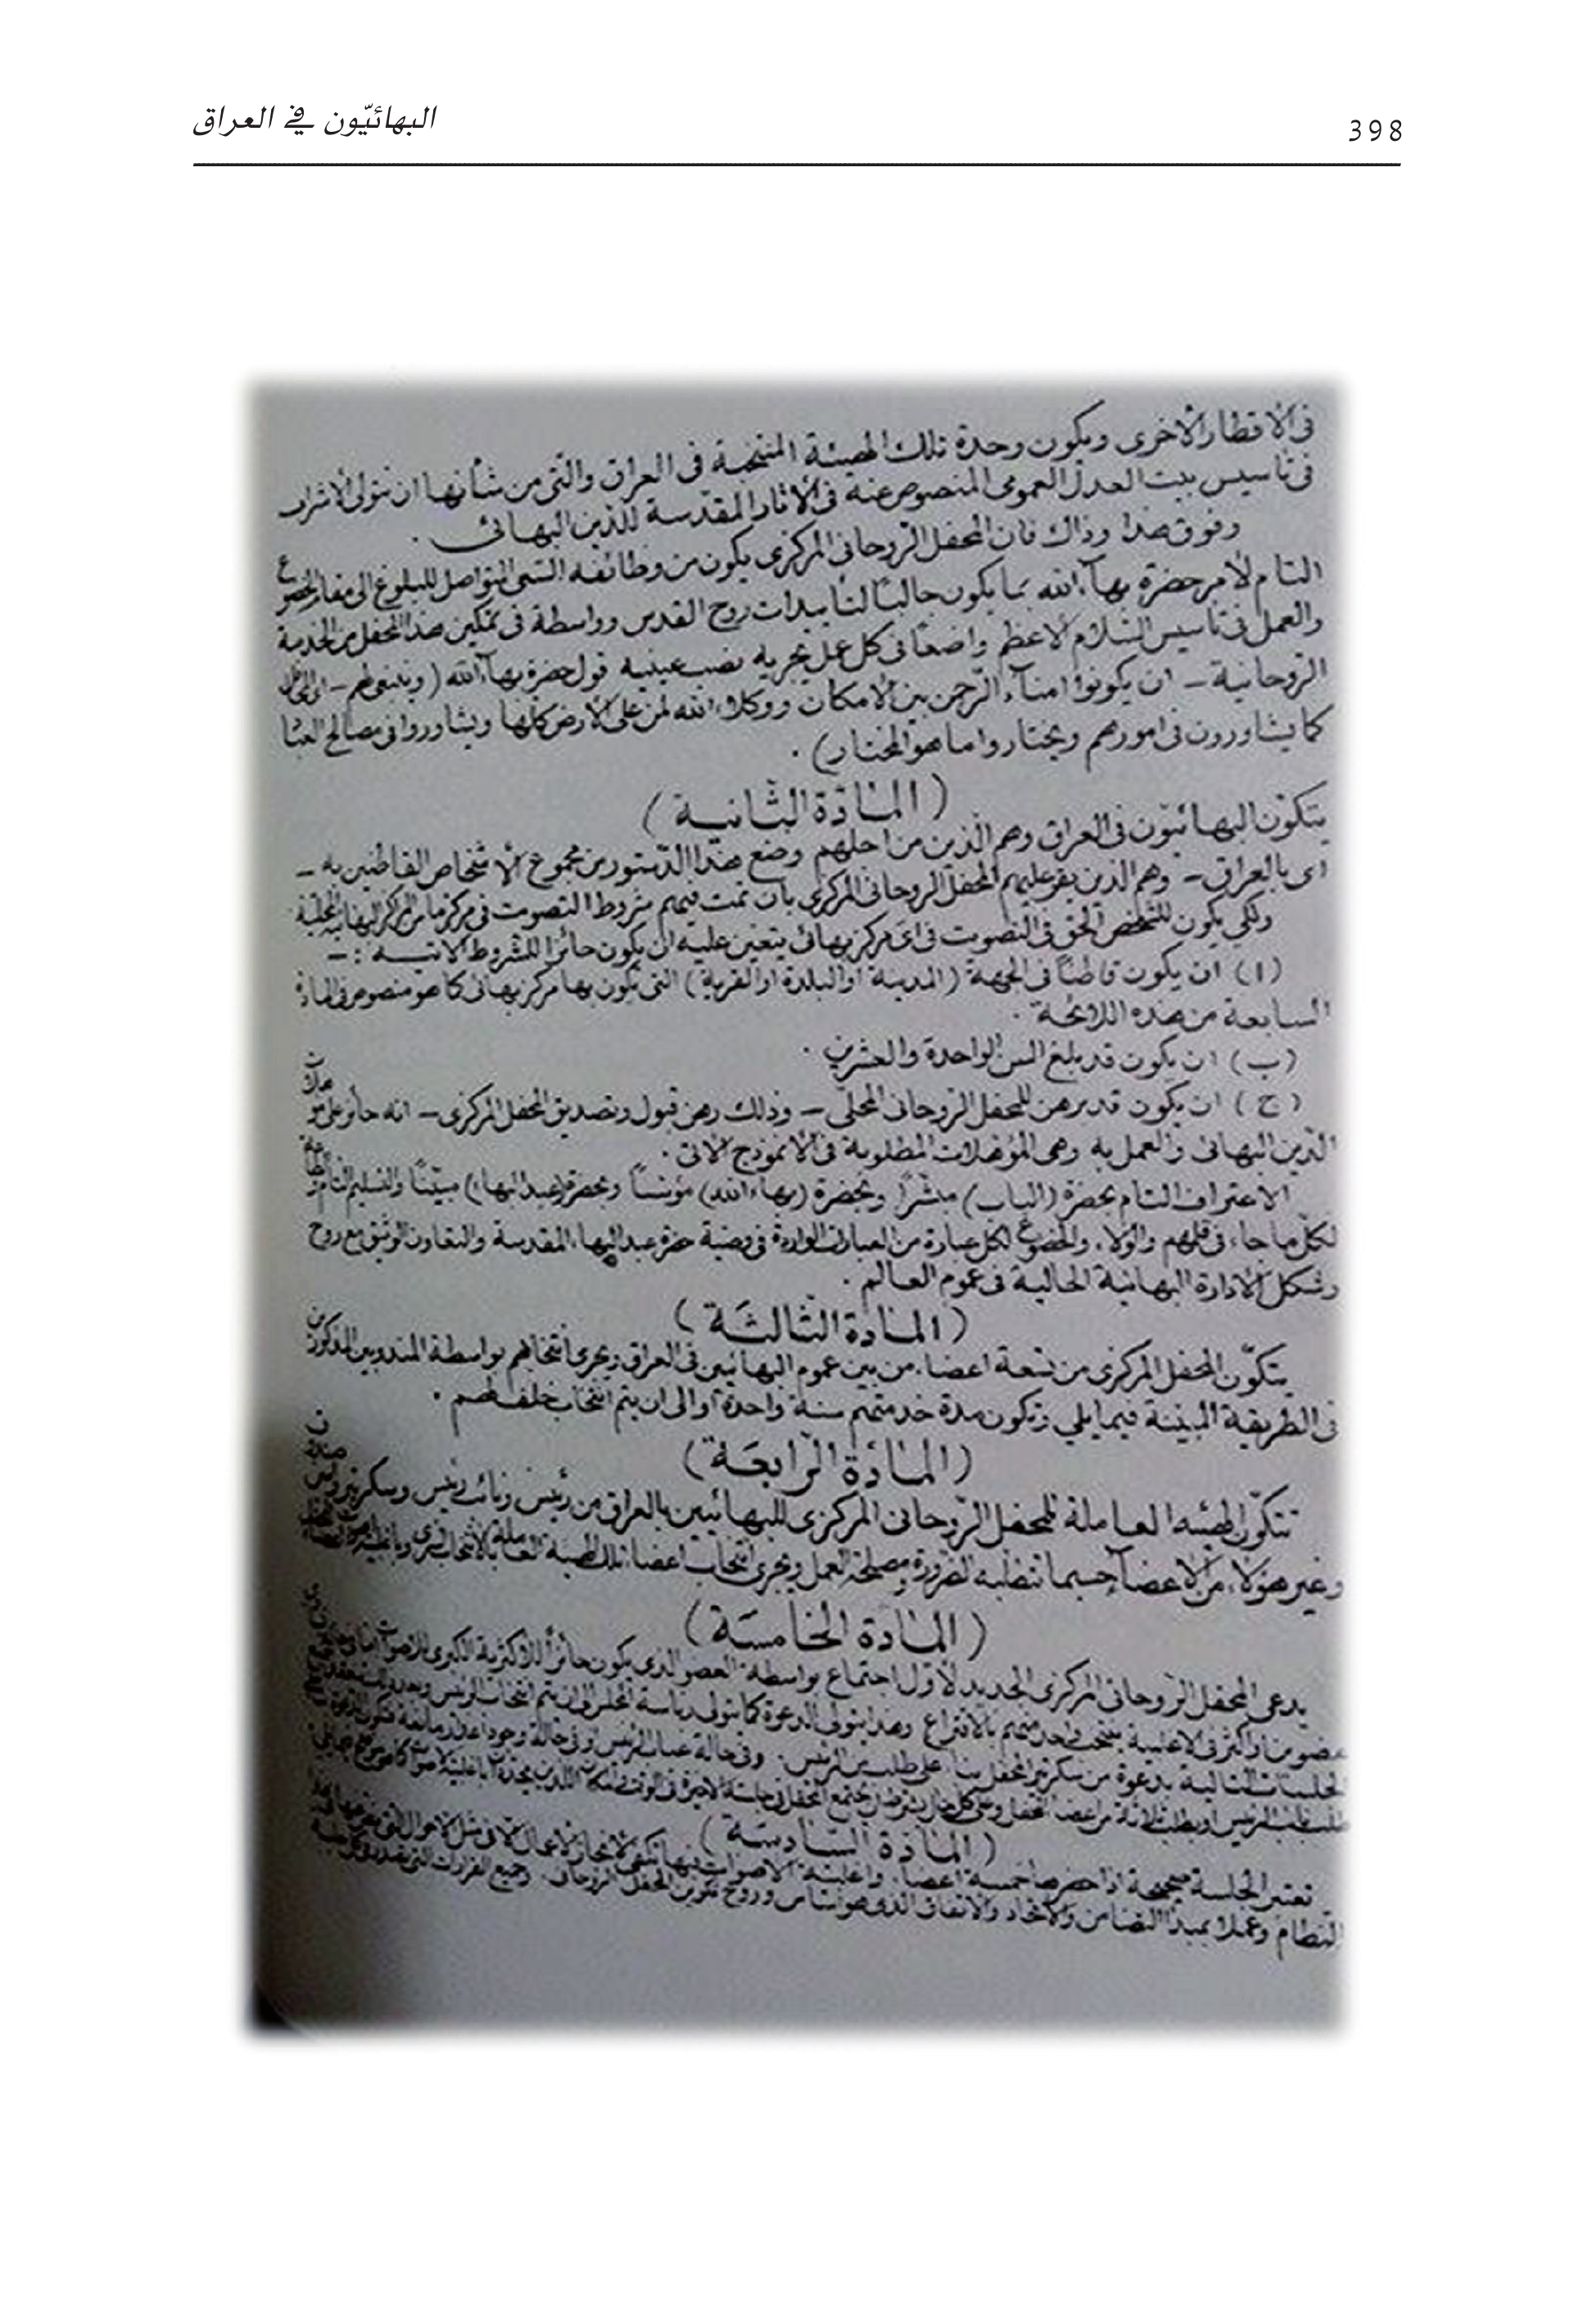 البهائيّون في العراق
398
في الاقطار الأخرى ويكون وحدة تلك الهيئة المنتخبة في العراق والتي من شأنها ان تتولى الاشراك
في تأسيس بيت العدل العمومي المنصوص عنه في الاثار المقدسة للدين البهائي .
وفوق هذا وذاك فان المحفل الروحاني المركزي يكون من وظائفه السعي المتواصل للبلوغ الى مقام الخضوع
التام لامر حضرة بهاءالله بما يكون جالباً لتأييدات روح القدس وواسطة في تمكين هذا المحفل من الخدمة
والعمل في تأسيس السلام الاعظم واضعاً في كل عمل يجريه نصب عينيه قول حضرة بهاءالله ( وينبغي لهم -
الروحانية - ان يكونوا امناء الرحمن بين الامكان ووكلاء الله لمن على الأرض كلها ويشاوروا في مصالح العباد
كما يشاورون في امورهم ويختاروا ما هو المختار) .
( المادة الثانية )
يتكون البهائيون في العراق وهم الذين من اجلهم وضع هذا الدستور من مجموع الأشخاص القاطنين به -
اى بالعراق - وهم الذين يقر عليهم المحفل الروحاني المركزي بان تمت فيهم شروط التصويت في مركز ما من المراكز البهائية المحلية
ولكي يكون للشخص الحق في التصويت في اى مركز بهائي يتعين عليه ان يكون حائزا للشروط الاتيــة : -
(ا) ان يكون قاطناً في الجهة ( المدينة او البلدة او القرية ) التي يكون بها مركز بهائي كما هو منصوص في المادة
السابعة من هذه اللائحة .
(ب) ان يكون قد بلغ السن الواحدة والعشرين .
( ج ) ان يكون قد برهن للمحفل الروحاني المحلي - وذلك رهن قبول وتصديق المحفل المركزي - انه حائز على
الدين البهائي والعمل به وهي المؤهلات المطلوبة في الانموذج الاتي .
الاعتراف التام بحضرة (الباب) مبشراً وبحضرة (بهاءالله) مؤسساً وبحضرة (عبدالبهاء) مبيّناً والتسليم التام
لكل ما جاء في قلمهم والولاء والخضوع لكل عبارة من العبارات الواردة في وصية حضرة عبدالبهاء المقدسة والتعاون الوثيق مع روح
وشكل الادارة البهائية الحالية في عموم العالم .
( المادة الثالثة )
يتكوّن المحفل المركزي من تسعة اعضاء من بين عموم البهائيين في العراق ويجري انتخابهم بواسطة المندوبين المذكورين
في الطريقة المبينة فيما يلي وتكون مدة خدمتهم سنة واحدة او الى ان يتم انتخاب خلف لهم .
(المادة الرابعة)
تتكوّن الهيئه العاملة للمحفل الروحاني المركزي للبهائيين بالعراق من رئيس ونائب رئيس وسكرتير
وغير هؤلاء من الاعضاء حسبما تتطلبه الضرورة ومصلحة العمل ويجري انتخاب اعضاء تلك الهيئة العاملة بالانتخاب السري
( المادة الخامسة )
يدعى المحفل الروحاني المركزي الجديد لاول اجتماع بواسطة العضو الذي يكون حائزاً للاكثرية الكبرى
بالاقتراع وهذا يتولى الدعوة كما يتولى رياسة المحفل الى ان يتم انتخاب الرئيس
الجلسات التالية بدعوة من سكرتير المحفل بناء على طلب من الرئيس . وفي حالة غياب الرئيس
( المادة السادسة )
تعتبر الجلسة صحيحة اذا حضرها خمسة اعضاء . واغلبية الاصوات فيها تكفي لانجاز الاعمال
النظام وعملا بمبدأ التضامن والاتحاد والاتفاق الذي هو اساس وروح تكوين المحفل الروحاني .